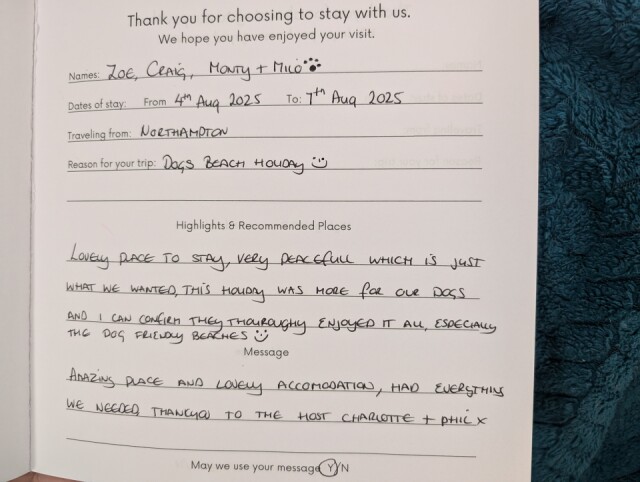 Thank you for choosing to stay with us.
We hope you have enjoyed your visit.
Names: ZOE, CRAIG, MONTY + MILO
Dates of stay: From 4th AUG 2025 To: 7th AUG 2025
Traveling from: NORTHAMPTON
Reason for your trip: DOGS BEACH HOLIDAY
Highlights & Recommended Places
LOVELY PLACE TO STAY, VERY PEACEFULL WHICH IS JUST
WHAT WE WANTED, THIS HOLIDAY WAS MORE FOR OUR DOGS
AND I CAN CONFIRM THEY THOUROUGHY ENJOYED IT ALL, ESPECIALLY
THE DOG FRIENDLY BEACHES
Message
AMAZING PLACE AND LOVELY ACCOMODATION, HAD EVERYTHING
WE NEEDED THANKYOU TO THE HOST CHARLOTTE + PHIL X
May we use your message Y/N